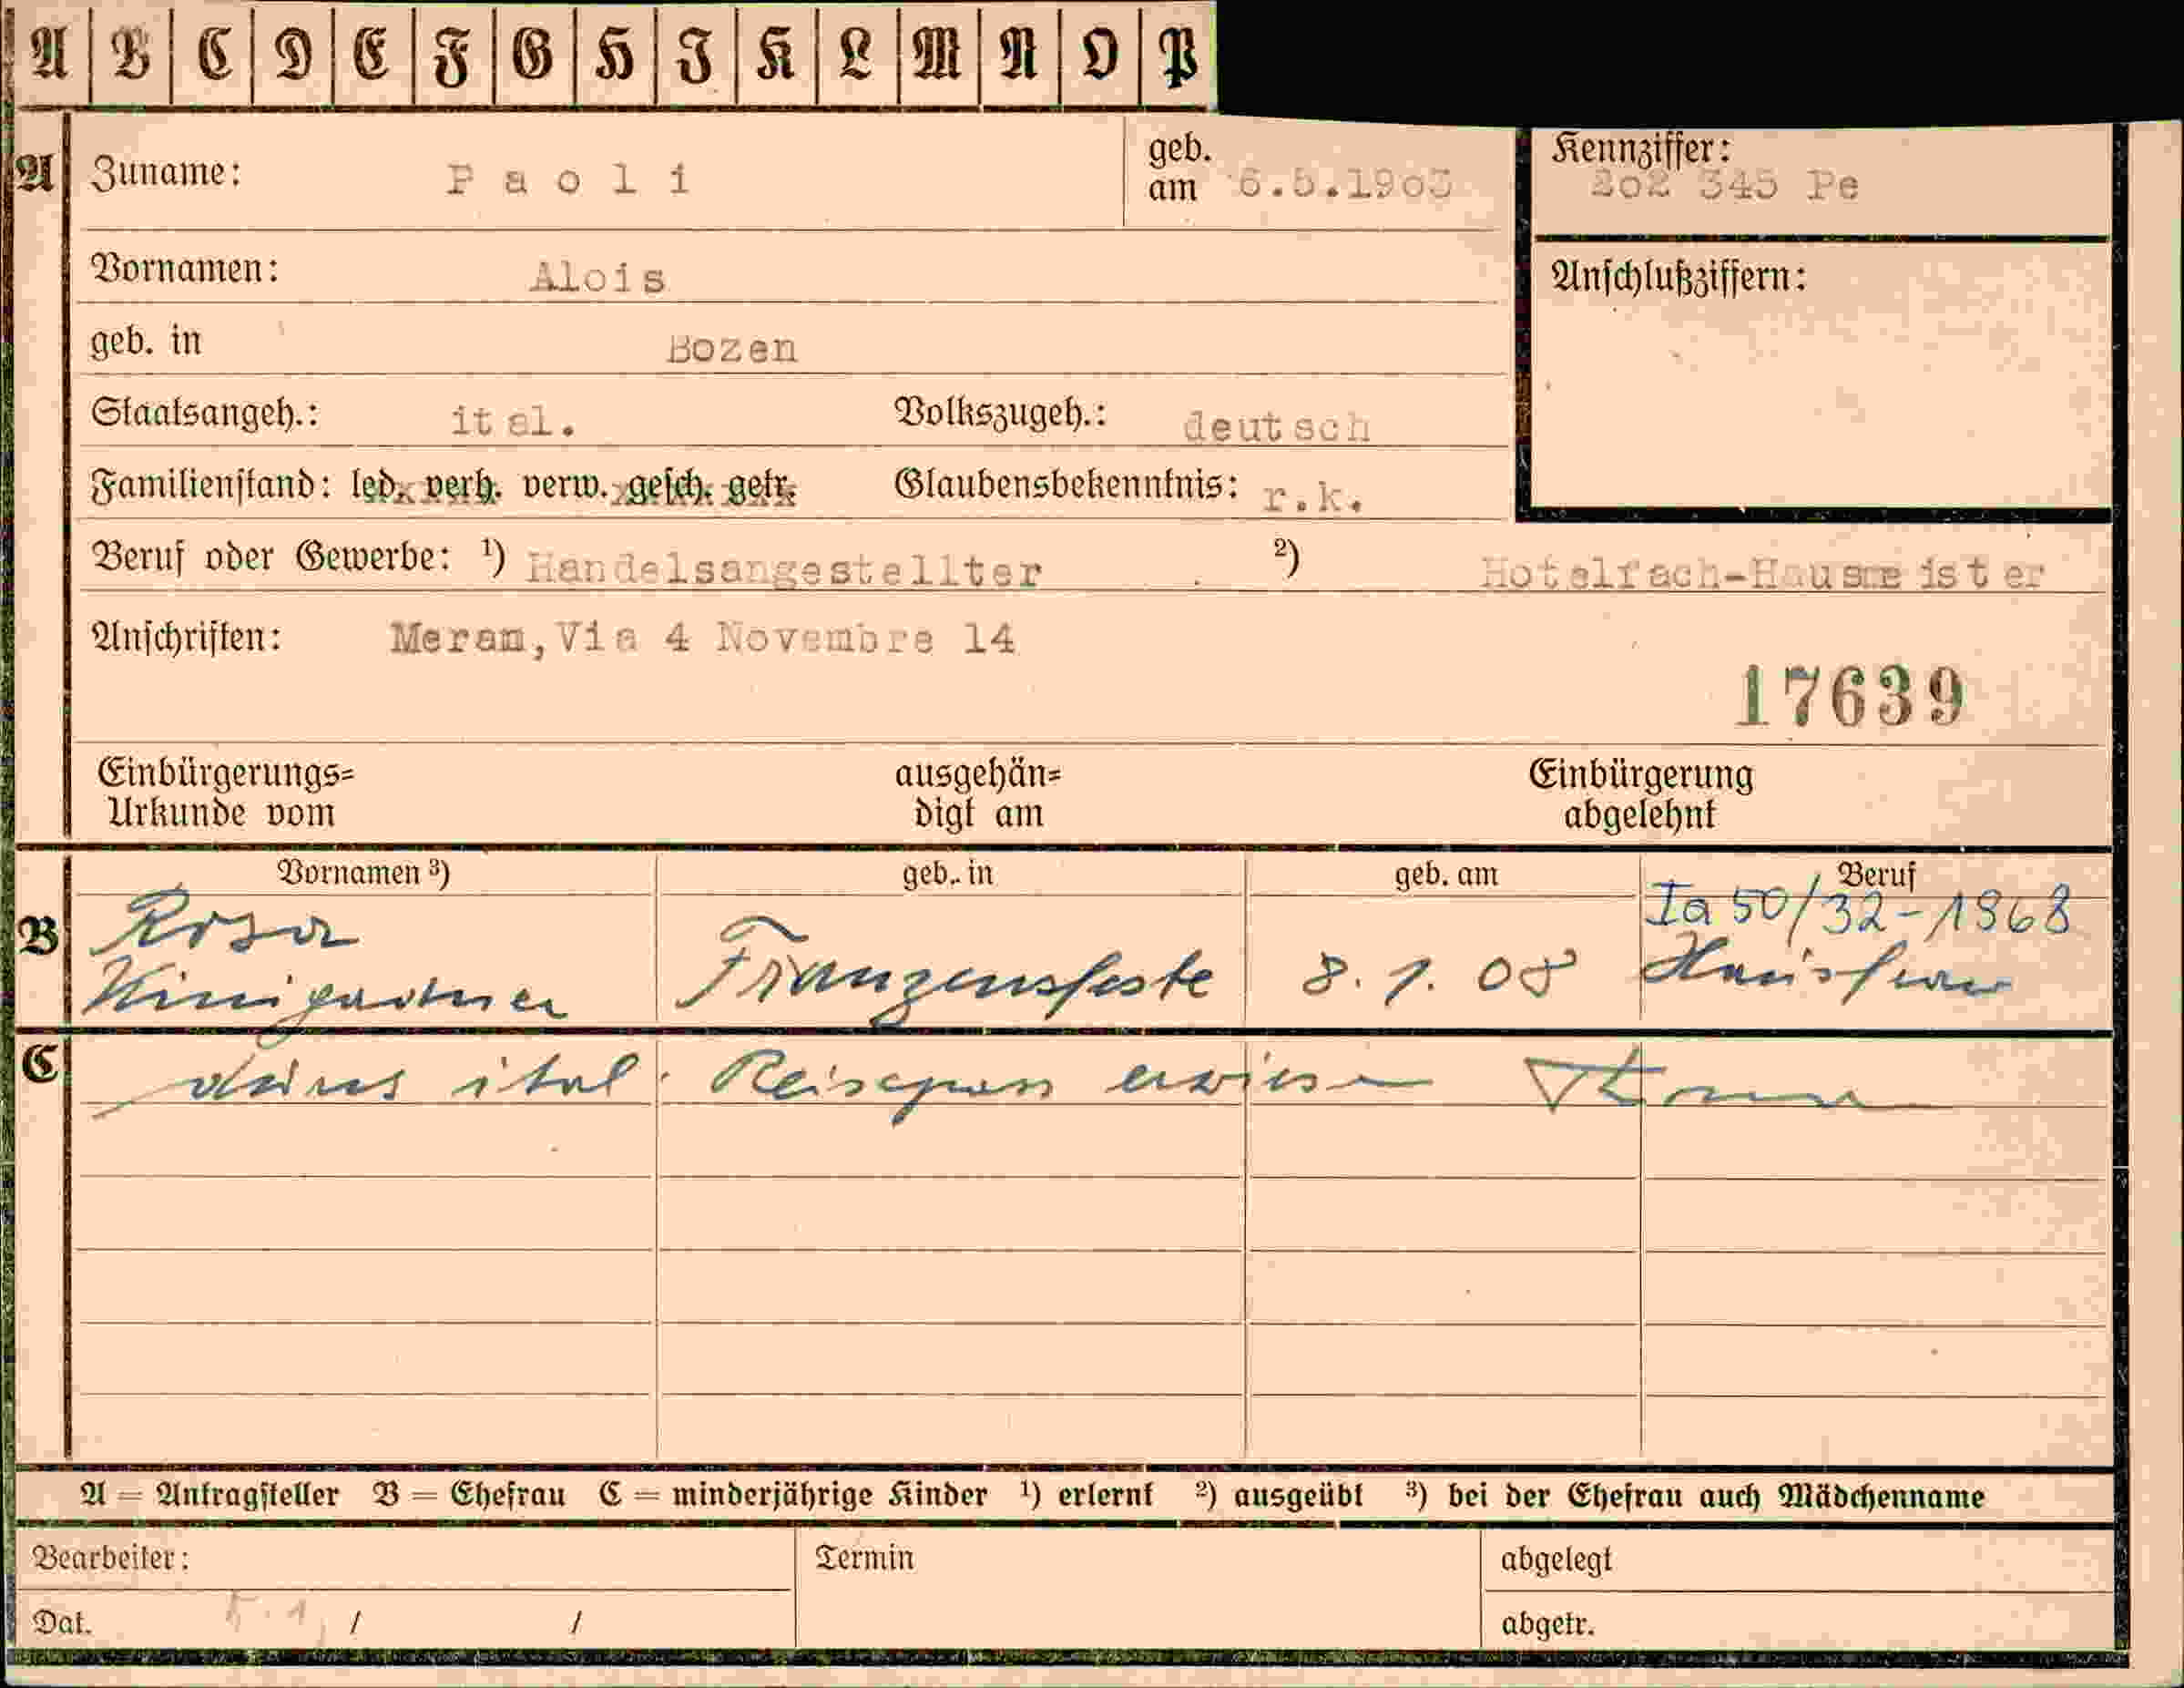 A B C D E F G H I K L M N O P
A Zuname: Paoli geb. am 6.5.1903 Kennziffer: 202 345 Pe
Vornamen: Alois Anschlußziffern:
geb. in Bozen
Staatsangeh.: ital. Volkszugeh.: deutsch
Familienstand: led. verh. verw. gesch. getr. Glaubensbekenntnis: r.k.
Beruf oder Gewerbe: ¹) Handelsangestellter ²) Hotelfach-Hausmeister
Anschriften: Meran, Via 4 Novembre 14
17639
Einbürgerungs= ausgehän= Einbürgerung
Urkunde vom digt am abgelehnt
Vornamen ³) geb. in geb. am Beruf
Ia 50/32-1968
B Rosa
Kinigadner Franzensfeste 8. 1. 08 Hausfrau
C ital. Reisepass erwiesen
A = Antragsteller B = Ehefrau C = minderjährige Kinder ¹) erlernt ²) ausgeübt ³) bei der Ehefrau auch Mädchenname
Bearbeiter: Termin abgelegt
Dat. / / abgetr.